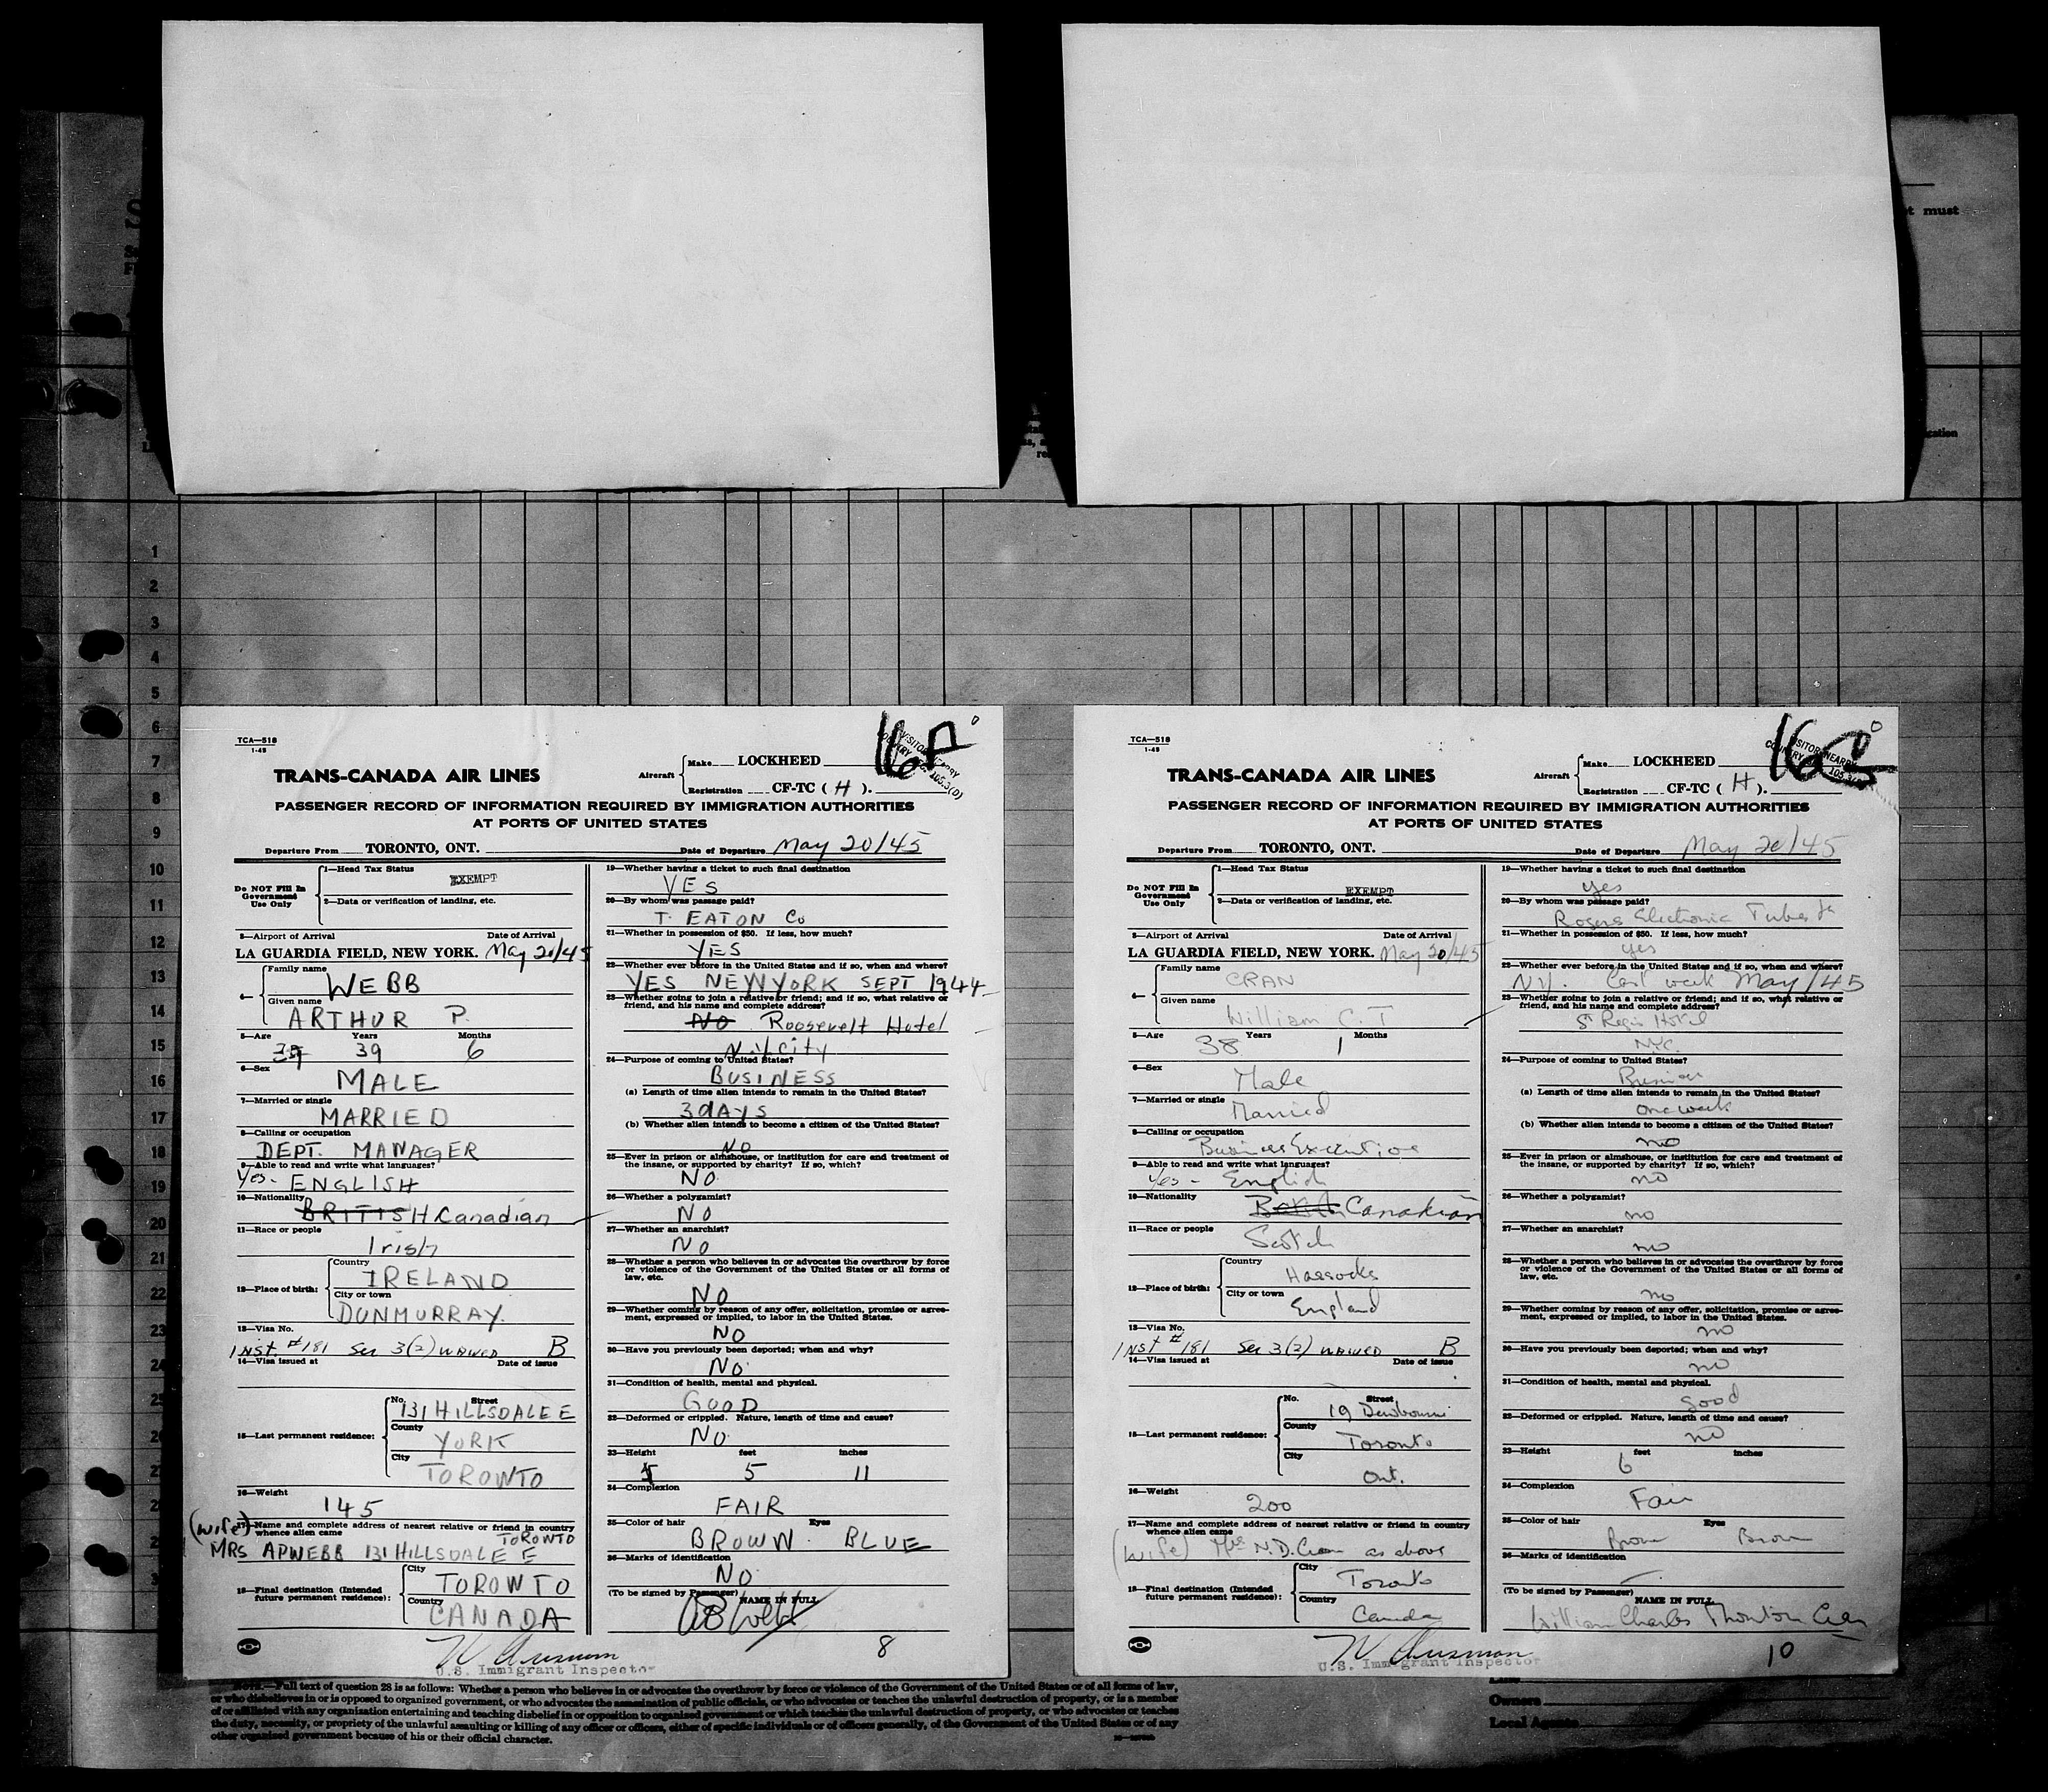 t must
cation
1
2
3
4
5
6
7
8
9
10
11
12
13
14
15
16
17
18
19
20
21
22
23
24
25
TCA—518
1-45
TRANS-CANADA AIR LINES
Aircraft
Make LOCKHEED
Registration CF-TC ( H ).
16A
PASSENGER RECORD OF INFORMATION REQUIRED BY IMMIGRATION AUTHORITIES
AT PORTS OF UNITED STATES
Departure From TORONTO, ONT. Date of Departure May 20/45
Do NOT Fill In Government Use Only
1—Head Tax Status
EXEMPT
2—Data or verification of landing, etc.
3—Airport of Arrival Date of Arrival
LA GUARDIA FIELD, NEW YORK. May 20/45
4—
Family name
WEBB
Given name
ARTHUR P.
5—Age Years Months
39 6
6—Sex
MALE
7—Married or single
MARRIED
8—Calling or occupation
DEPT. MANAGER
9—Able to read and write what languages?
Yes- ENGLISH
10—Nationality
BRITISH Canadian
11—Race or people
Irish
12—Place of birth:
Country
IRELAND
City or town
DUNMURRAY.
13—Visa No.
INST. #181 Sec 3(2) WAIVED B
14—Visa issued at Date of issue
15—Last permanent residence:
No. Street
131 HILLSDALE E
County
YORK
City
TORONTO
16—Weight
145
17—Name and complete address of nearest relative or friend in country
whence alien came
(wife) TORONTO
MRS APWEBB 131 HILLSDALE E
18—Final destination (Intended
future permanent residence):
City
TORONTO
Country
CANADA
19—Whether having a ticket to such final destination
YES
20—By whom was passage paid?
T. EATON Co
21—Whether in possession of $50. If less, how much?
YES
22—Whether ever before in the United States and if so, when and where?
YES NEW YORK SEPT 1944
23—Whether going to join a relative or friend; and if so, what relative or
friend, and his name and complete address?
NO Roosevelt Hotel
N.Y City
24—Purpose of coming to United States?
BUSINESS
(a) Length of time alien intends to remain in the United States?
3 dAYS
(b) Whether alien intends to become a citizen of the United States?
NO
25—Ever in prison or almshouse, or institution for care and treatment of
the insane, or supported by charity? If so, which?
NO
26—Whether a polygamist?
NO
27—Whether an anarchist?
NO
28—Whether a person who believes in or advocates the overthrow by force
or violence of the Government of the United States or all forms of
law, etc.
NO
29—Whether coming by reason of any offer, solicitation, promise or agree-
ment, expressed or implied, to labor in the United States.
NO
30—Have you previously been deported; when and why?
NO
31—Condition of health, mental and physical.
GOOD
32—Deformed or crippled. Nature, length of time and cause?
NO
33—Height feet inches
5 11
34—Complexion
FAIR
35—Color of hair Eyes
BROWN BLUE
36—Marks of identification
NO
(To be signed by Passenger) NAME IN FULL
U.S. Immigrant Inspector
8
TCA—518
1-45
TRANS-CANADA AIR LINES
Aircraft
Make LOCKHEED
Registration CF-TC ( H ).
PASSENGER RECORD OF INFORMATION REQUIRED BY IMMIGRATION AUTHORITIES
AT PORTS OF UNITED STATES
Departure From TORONTO, ONT. Date of Departure May 20/45
Do NOT Fill In Government Use Only
1—Head Tax Status
EXEMPT
2—Data or verification of landing, etc.
3—Airport of Arrival Date of Arrival
LA GUARDIA FIELD, NEW YORK. May 20/45
4—
Family name
CRAN
Given name
William C. T
5—Age Years Months
38 1
6—Sex
Male
7—Married or single
Married
8—Calling or occupation
Business Executive
9—Able to read and write what languages?
Yes - English
10—Nationality
British Canadian
11—Race or people
Scotch
12—Place of birth:
Country
Hassocks
City or town
England
13—Visa No.
INST #181 Sec 3(2) WAIVED B
14—Visa issued at Date of issue
15—Last permanent residence:
No. Street
19 Dewbourne
County
Toronto
City
Ont.
16—Weight
200
17—Name and complete address of nearest relative or friend in country
whence alien came
(wife) Mrs N.D. Cran as above
18—Final destination (Intended
future permanent residence):
City
Toronto
Country
Canada
19—Whether having a ticket to such final destination
yes
20—By whom was passage paid?
Rogers Electronic Tubes
21—Whether in possession of $50. If less, how much?
yes
22—Whether ever before in the United States and if so, when and where?
N.Y. Last week May/45
23—Whether going to join a relative or friend; and if so, what relative or
friend, and his name and complete address?
St Regis Hotel
N.Y.C.
24—Purpose of coming to United States?
Business
(a) Length of time alien intends to remain in the United States?
one week
(b) Whether alien intends to become a citizen of the United States?
no
25—Ever in prison or almshouse, or institution for care and treatment of
the insane, or supported by charity? If so, which?
no
26—Whether a polygamist?
no
27—Whether an anarchist?
no
28—Whether a person who believes in or advocates the overthrow by force
or violence of the Government of the United States or all forms of
law, etc.
no
29—Whether coming by reason of any offer, solicitation, promise or agree-
ment, expressed or implied, to labor in the United States.
no
30—Have you previously been deported; when and why?
no
31—Condition of health, mental and physical.
good
32—Deformed or crippled. Nature, length of time and cause?
no
33—Height feet inches
6
34—Complexion
Fair
35—Color of hair Eyes
Brown Brown
36—Marks of identification
(To be signed by Passenger) NAME IN FULL
William Charles Thornton Cran
U.S. Immigrant Inspector
10
NOTE.—Full text of question 28 is as follows: Whether a person who believes in or advocates the overthrow by force or violence of the Government of the United States or of all forms of law,
or who disbelieves in or is opposed to organized government, or who advocates the assassination of public officials, or who advocates or teaches the unlawful destruction of property, or is a member
of or affiliated with any organization entertaining and teaching disbelief in or opposition to organized government or which teaches the unlawful destruction of property, or who advocates or teaches
the duty, necessity, or propriety of the unlawful assaulting or killing of any officer or officers, either of specific individuals or of officers generally, of the Government of the United States or of any
other organized government because of his or their official character.
Owners
Local Agents